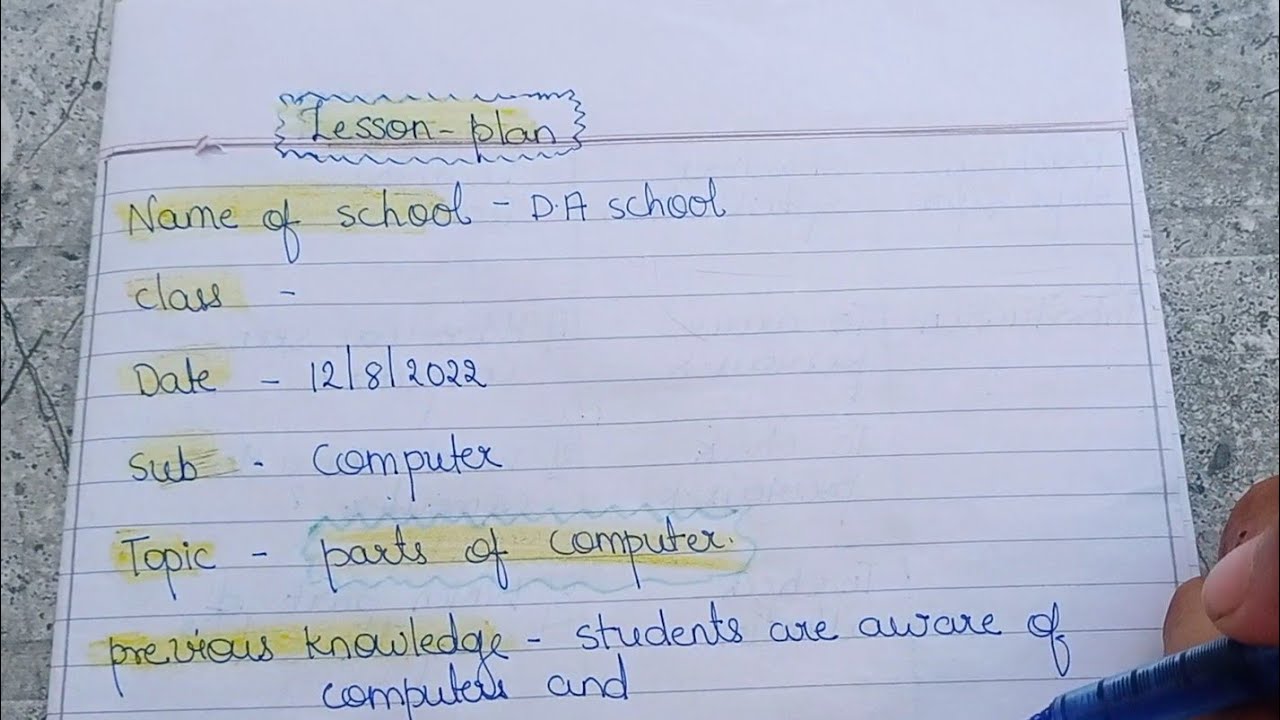 Lesson-plan
Name of school - D.A school
class -
Date - 12/8/2022
Sub - Computer
Topic - parts of computer.
previous knowledge - students are aware of
computers and